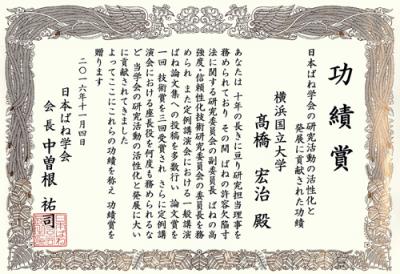 功績賞
日本ばね学会の研究活動の活性化と
発展に貢献された功績
横浜国立大学
髙橋 宏治 殿
あなたは 十年の長きに亘り研究担当理事を
務められており その間 ばねの許容欠陥寸
法に関する研究委員会の副委員長 ばねの高
強度/信頼性化技術研究委員会の委員長を務
められ また定例講演会における一般講演
ばね論文集への投稿を多数行い 論文賞を
一回 技術賞を三回受賞され さらに定例講
演会における座長役を何度も務められるな
ど 当学会の研究活動の活性化と発展に大い
に貢献されてきました
よってここにこれらの功績を称え 功績賞を
贈ります
二〇一六年十一月四日
日本ばね学会
会長 中曽根 祐司